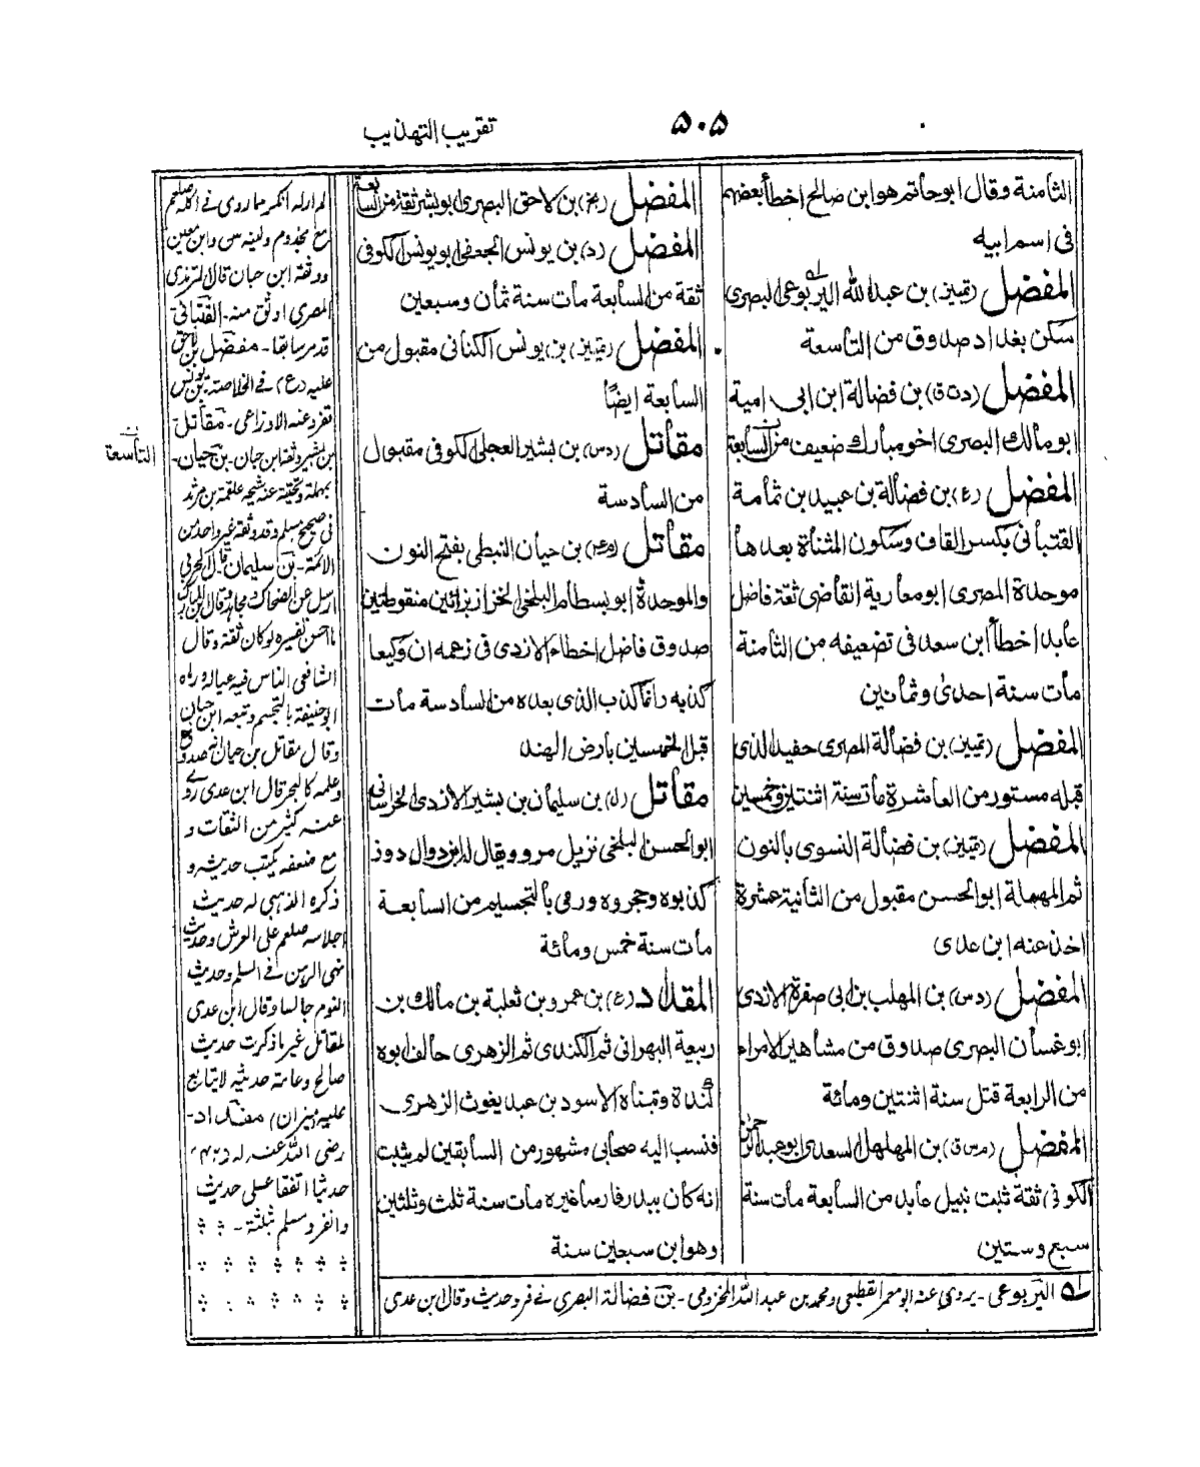 ۵۰۵
تقريب التهذيب
الثامنة وقال ابوحاتم هو ابن صالح اخطأ بعضهم
فى اسم ابيه
المفضل (تمييز) بن عبد الله اليربوعى البصرى
سكن بغداد صدوق من التاسعة
المفضل (د ت ق) بن فضالة ابن ابى امية
ابو مالك البصرى اخو مبارك ضعيف من السابعة
المفضل (ع) بن فضالة بن عبيد بن ثمامة
القتبانى بكسر القاف وسكون المثناة بعدها
موحدة المصرى ابو معاوية القاضى ثقة فاضل
عابد اخطأ ابن سعد فى تضعيفه من الثامنة
مات سنة احدى وثمانين
المفضل (تمييز) بن فضالة المصرى حفيد الذى
قبله مستور من العاشرة مات سنة اثنتين وخمسين
المفضل (تمييز) بن فضالة النسوى بالنون
ثم المهملة ابو الحسن مقبول من الثانية عشرة
اخذ عنه ابن عدى
المفضل (د س) بن المهلب بن ابى صفرة الازدى
ابو غسان البصرى صدوق من مشاهير الامراء
من الرابعة قتل سنة اثنتين ومائة
المفضل (م س ق) بن المهلهل السعدى ابو عبد الرحمن
الكوفى ثقة ثبت نبيل عابد من السابعة مات سنة
سبع وستين
المفضل (بخ) بن لاحق البصرى ابو بشر ثقة من السابعة
المفضل (د) بن يونس الجعفى ابو يونس الكوفى
ثقة من السابعة مات سنة ثمان وسبعين
المفضل (تمييز) بن يونس الكنانى مقبول من
السابعة ايضًا
مقاتل (د س) بن بشير العجلى الكوفى مقبول
من السادسة
مقاتل (م عه) بن حيان النبطى بفتح النون
والموحدة ابو بسطام البلخى الخزاز بزائين منقوطتين
صدوق فاضل اخطاء الازدى فى زعمه ان وكيعا
كذبه وانما كذب الذى بعده من السادسة مات
قبل الخمسين بارض الهند
مقاتل (ل) بن سليمان بن بشير الازدى الخراسانى
ابو الحسن البلخى نزيل مرو ويقال له ابن دوال دوز
كذبوه وهجروه ورمى بالتجسيم من السابعة
مات سنة خمس ومائة
المقداد (ع) بن عمرو بن ثعلبة بن مالك بن
ربيعة البهرانى ثم الكندى ثم الزهرى حالف ابوه
كندة وتبناه الاسود بن عبد يغوث الزهرى
فنسب اليه صحابى مشهور من السابقين لم يثبت
انه كان ببدر فارسا غيره مات سنة ثلث وثلثين
وهو ابن سبعين سنة
لم ار له انكر مما روى فى اكله صلعم
مع مجذوم ولينه س وابن معين
ووثقه ابن حبان قال الترمذى
المصرى اوثق منه - القتبانى
قدم سابقا - مفضل بن لاحق
عليه (ع) فى الخلاصة بن يونس
تفرد عنه الاوزاعى - مقاتل
بن بشير وثقه ابن حبان - بن حيان -
بمهملة وتحتية عنه شيخه علقمة بن مرثد
فى صحيح مسلم وقد وثقه غير واحد من
الائمة - بن سليمان قال الحربى
ارسل عن الضحاك ومجاهد وقال ابن المبارك
ما احسن تفسيره لو كان ثقة وقال
الشافعى الناس فيه عيال ورماه
ابو حنيفة بالتجسم وتبعه ابن حبان
وقال مقاتل بن حيان انه صدوق
وعلمه كالبحر قال ابن عدى روى
عنه كثير من الثقات و
مع ضعفه يكتب حديثه و
ذكره الذهبى له حديث
اجلاسه صلعم على العرش وحديث
نهى الرهن فى السلم وحديث
النوم جالسا وقال ابن عدى
لمقاتل غير ما ذكرت حديث
صالح وعامة حديثه لا يتابع
عليه (ميزان) مقداد -
رضى الله عنه له ۴۲
حديثا اتفقا على حديث
وانفرد مسلم بثلثة -
التاسعة
ن
له اليربوعى - يروى عنه ابو معمر القطيعى ومحمد بن عبد الله المخزومى - بن فضالة البصرى له فرد حديث وقال ابن عدى